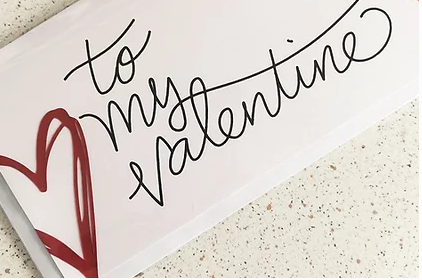 to
my
valentine